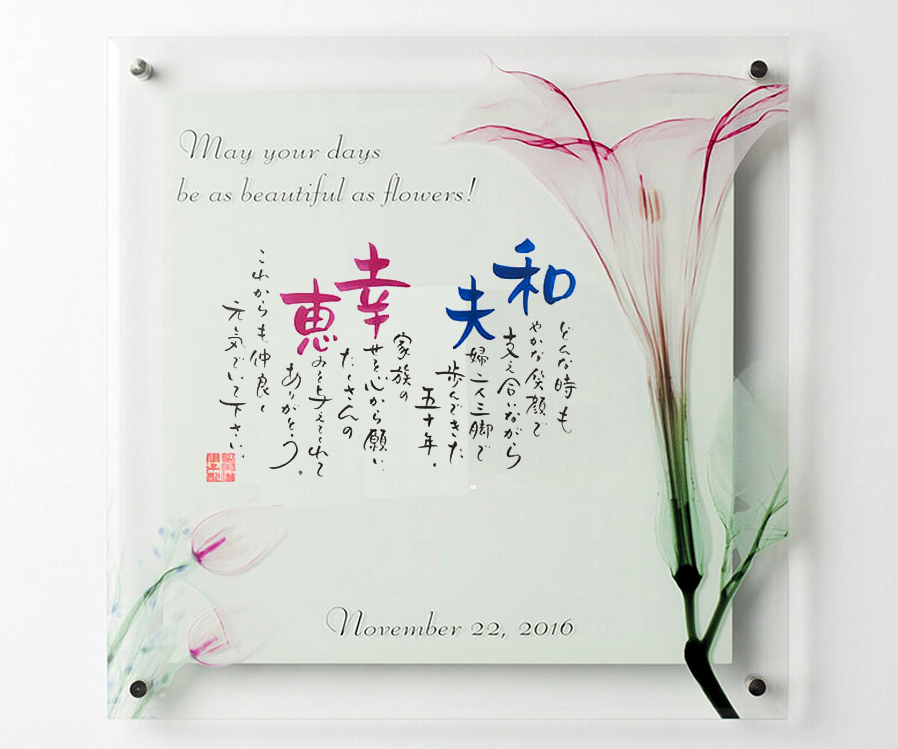 May your days
be as beautiful as flowers!
どんな時も
和やかな笑顔で
支え合いながら
夫婦二人三脚で
歩んできた
五十年。
家族の
幸せを心から願い
たくさんの
恵みを与えてくれて
ありがとう。
これからも仲良く
元気でいて下さい。
November 22, 2016